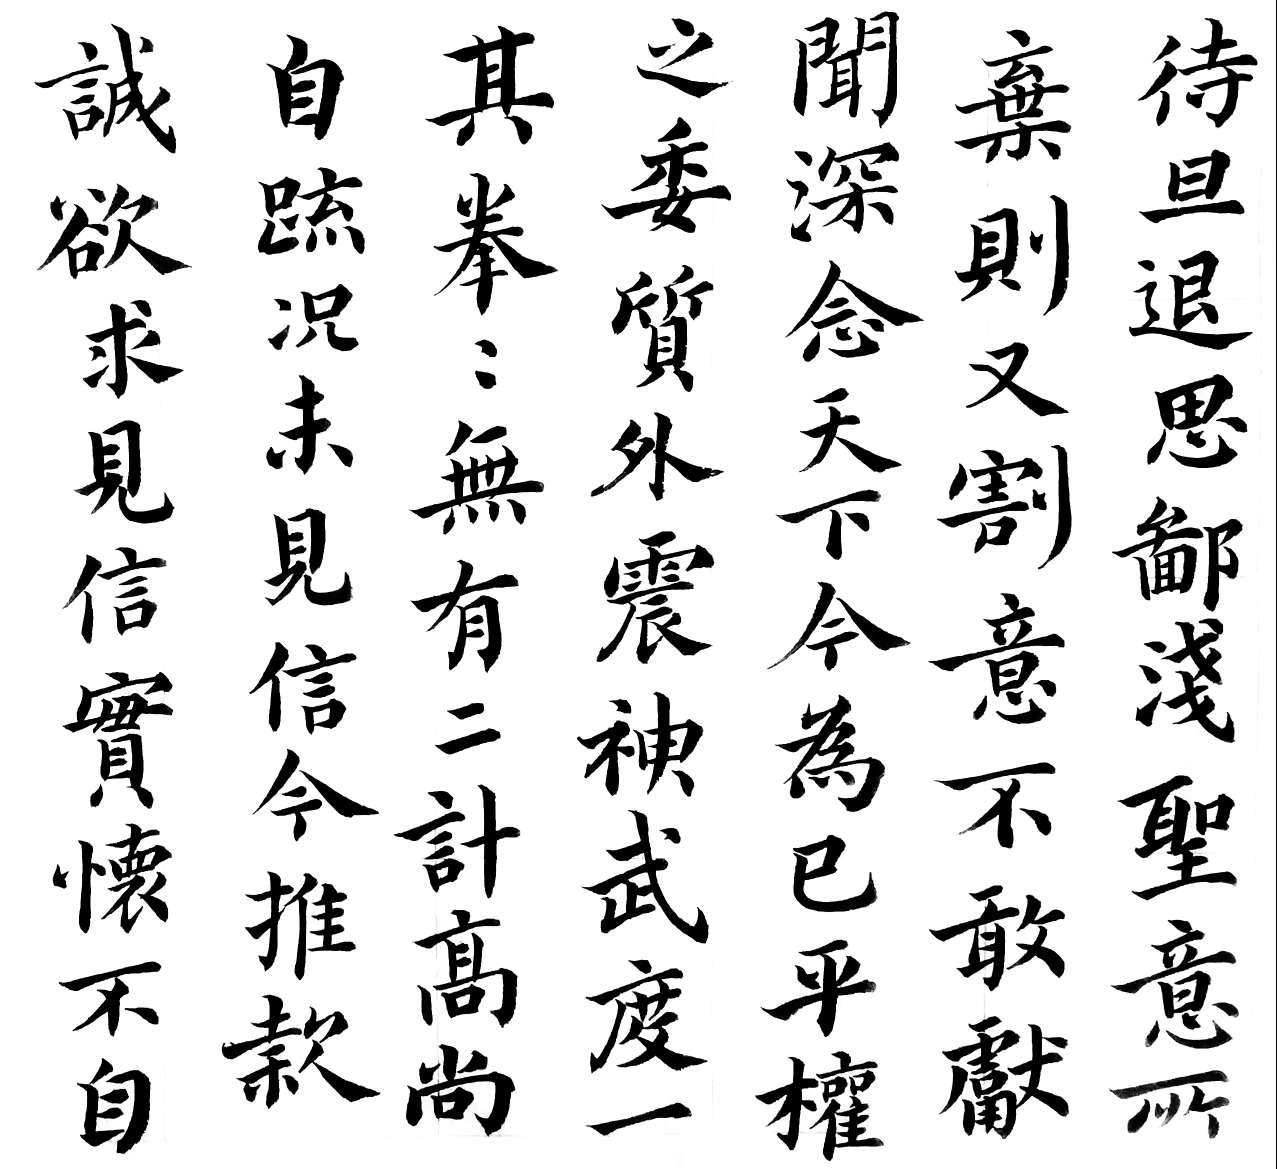 待旦退思鄙淺聖意所
棄則又割意不敢獻
聞深念天下今為已平權
之委質外震神武度一
其拳〻無有二計高尚
自疏况未見信今推款
誠欲求見信實懷不自